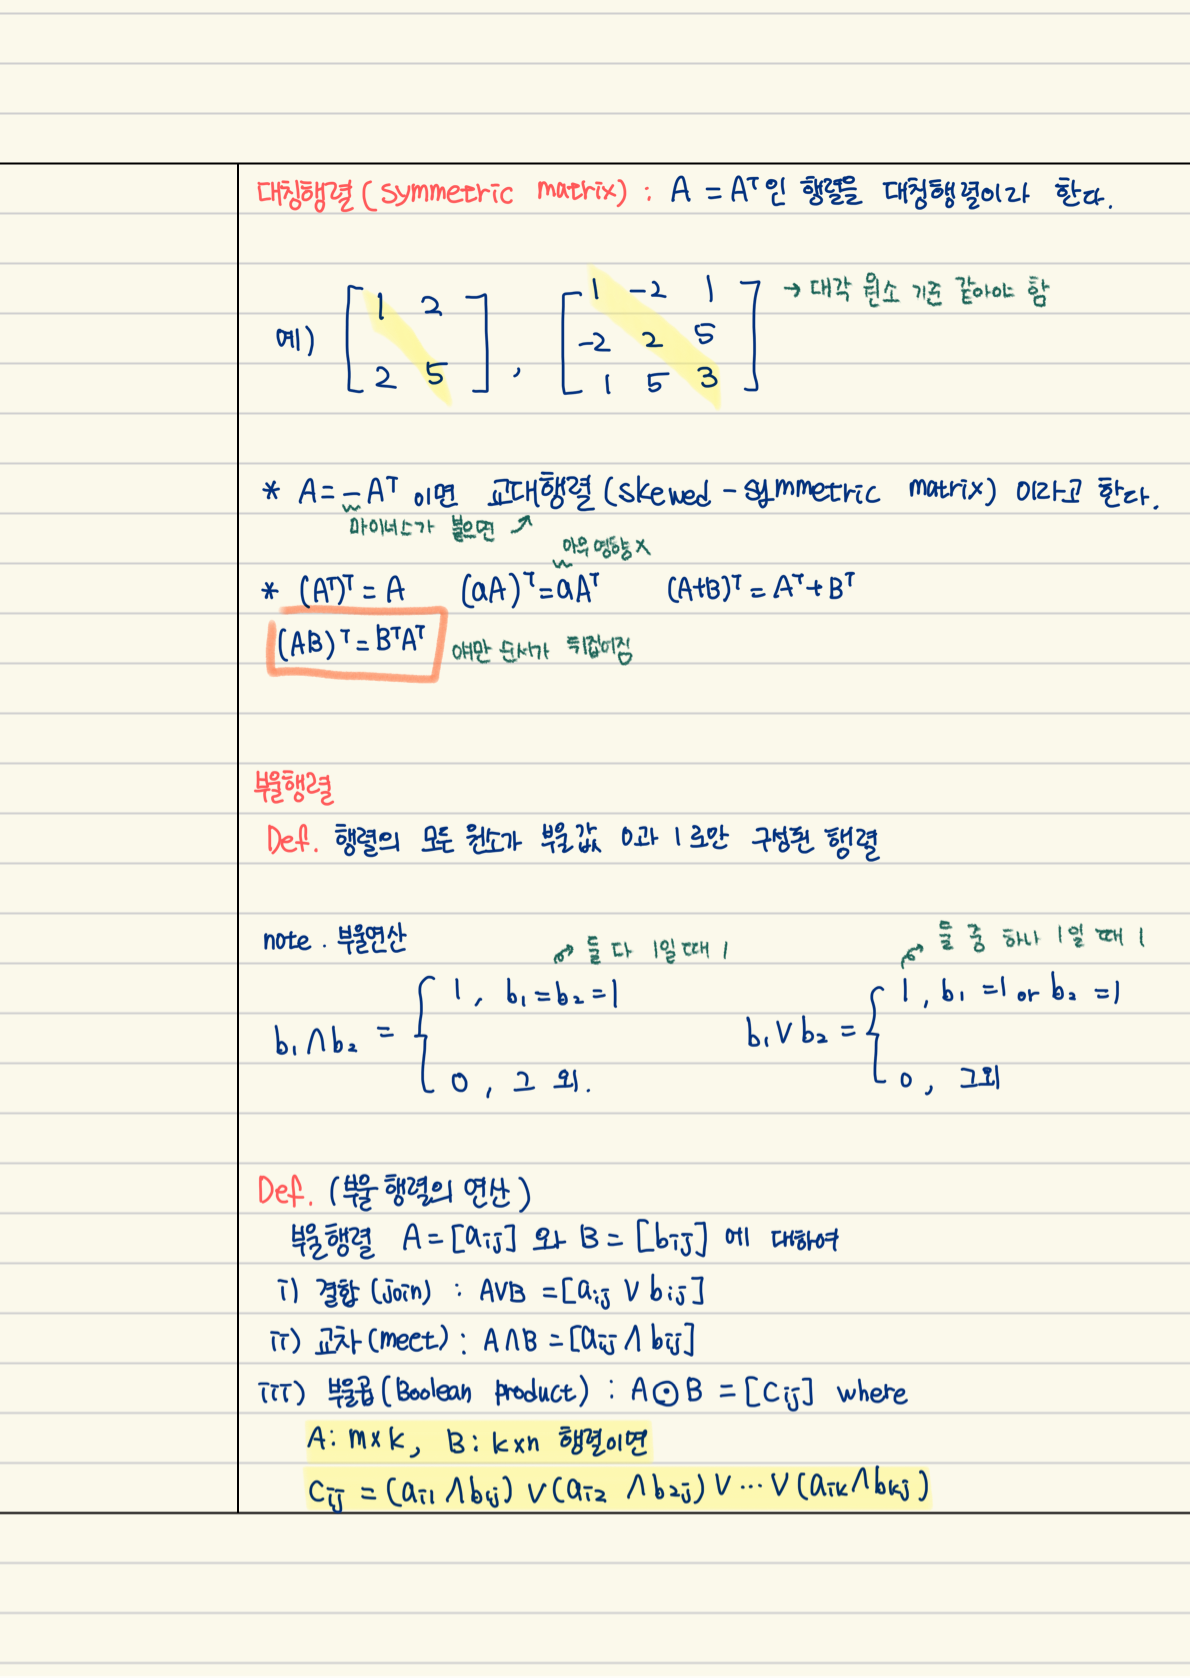 대칭행렬 (symmetric matrix) : A = Aᵀ인 행렬을 대칭행렬이라 한다.
예) [1 2
2 5] , [1 -2 1
-2 2 5
1 5 3] → 대각 원소 기준 같아야 함
* A = -Aᵀ 이면 교대행렬 (skewed-symmetric matrix) 이라고 한다.
마이너스가 붙으면 ↗
아무 영향 x
* (Aᵀ)ᵀ = A (aA)ᵀ = aAᵀ (A+B)ᵀ = Aᵀ + Bᵀ
(AB)ᵀ = BᵀAᵀ 얘만 순서가 뒤집어짐
부울행렬
Def. 행렬의 모든 원소가 부울값 0과 1로만 구성된 행렬
note. 부울연산
둘 다 1일 때 1
둘 중 하나 1일 때 1
b₁∧b₂ = { 1, b₁=b₂=1
0, 그 외.
b₁∨b₂ = { 1, b₁=1 or b₂=1
0, 그외
Def. (부울 행렬의 연산)
부울행렬 A = [aij] 와 B = [bij] 에 대하여
i) 결합 (join) : A∨B = [aij ∨ bij]
ii) 교차 (meet) : A∧B = [aij ∧ bij]
iii) 부울곱 (Boolean product) : A⊙B = [cij] where
A: m×k, B: k×n 행렬이면
cij = (ai1 ∧ bij) ∨ (ai2 ∧ b2j) ∨ ⋯ ∨ (aik ∧ bkj)